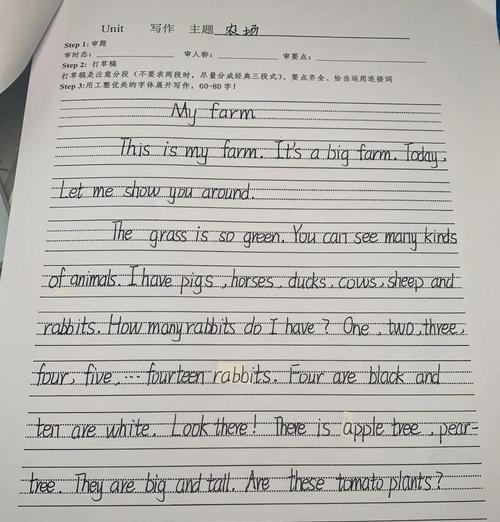 Unit 写作 主题 农场
Step 1: 审题
审时态: 审人称: 审要点:
Step 2: 打草稿
打草稿是注意分段（不要求两段时，尽量分成经典三段式）、要点齐全、恰当运用连接词
Step 3:用工整优美的字体展开写作，60-80 字！
My farm
This is my farm. It's a big farm. Today,
Let me show you around.
The grass is so green. You can see many kinds
of animals. I have pigs, horses, ducks, cows, sheep and
rabbits. How many rabbits do I have? One, two, three,
four, five, ... fourteen rabbits. Four are black and
ten are white. Look there! There is apple tree, pear-
tree. They are big and tall. Are these tomato plants?